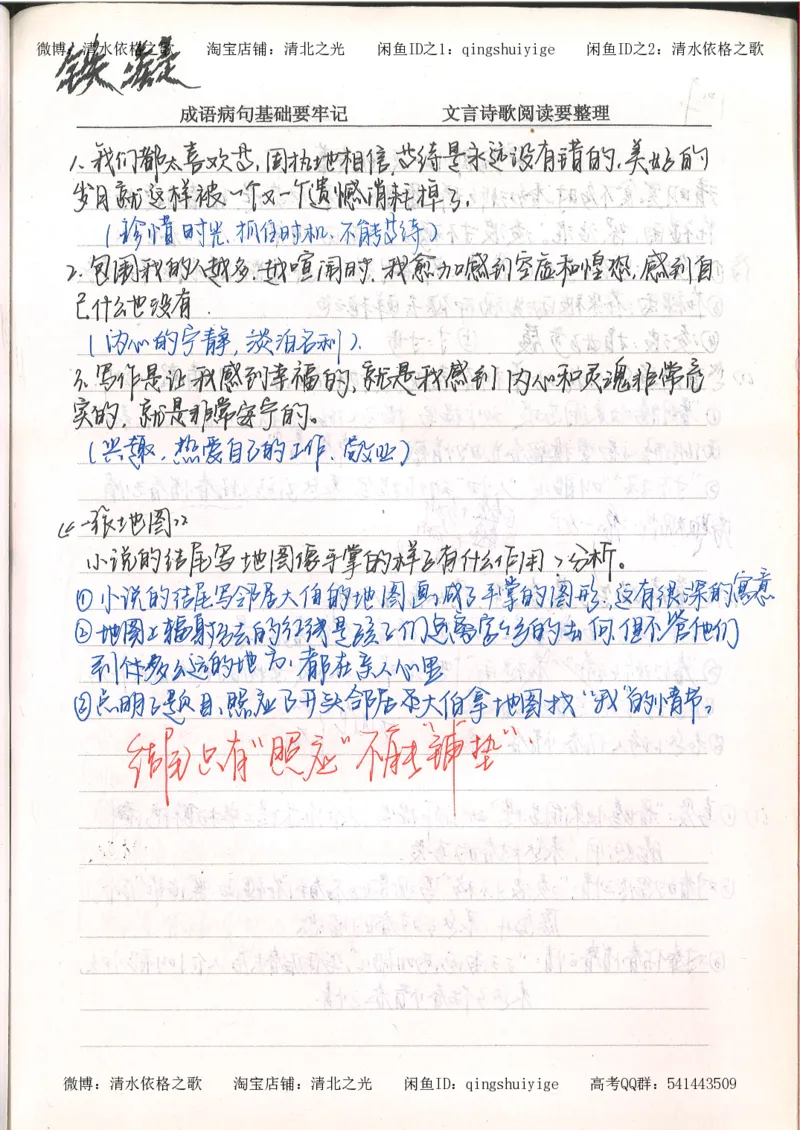 微博：清水依格之歌 淘宝店铺：清北之光 闲鱼ID之1：qingshuiyige 闲鱼ID之2：清水依格之歌
铁凝
成语病句基础要牢记 文言诗歌阅读要整理
1、我们都太喜欢等，固执地相信，等待是永远没有错的，美好的
岁月就这样被一个又一个遗憾消耗掉了。
（珍惜时光、抓住时机、不能等待）
2、包围我的人越多、越喧闹时，我愈加感到空虚和惶恐，感到自
己什么也没有．
（内心的宁静，淡泊名利）．
3、写作是让我感到幸福的，就是我感到内心和灵魂非常充
实的，就是非常安宁的。
（兴趣，热爱自己的工作、敬业）
《一张地图》
小说的结尾写地图像手掌的样子有什么作用？分析。
①小说的结尾写邻居大伯的地图画成了手掌的图形，这有很深的寓意
②地图上辐射多去的红线是孩子们远离家乡的去向，但不管他们
到什么多么远的地方，都在亲人心里
③点明了题目，照应了开头邻居大伯拿地图找“我”的情节。
结尾只有“照应”不有“铺垫”．
微博：清水依格之歌 淘宝店铺：清北之光 闲鱼ID：qingshuiyige 高考QQ群：541443509